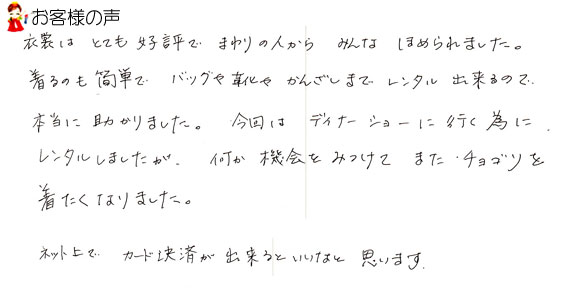 お客様の声
衣裳は とても 好評で まわりの人から みんな ほめられました。
着るのも 簡単で バッグや 靴や かんざしまで レンタル 出来るので
本当に 助かりました。 今回は ディナーショーに 行く 為に
レンタルしましたが、 何か 機会を みつけて また・チョゴリを
着たくなりました。
ネット上で カード決済が 出来ると いいなと 思います。